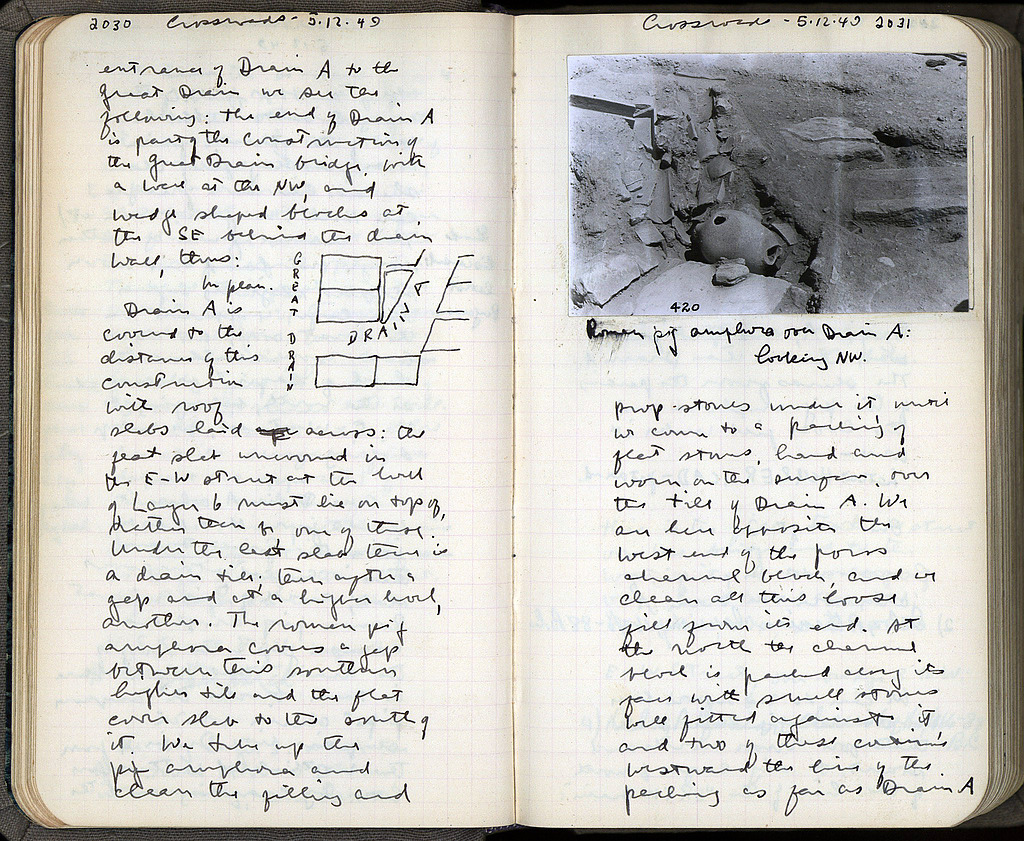 2030 Crossroads - 5.12.49
entrance of Drain A to the
great Drain we see the
following: the end of Drain A
is part of the construction of
the Great Drain bridge, with
a block at the NW, and
wedge shaped blocks at
the SE behind the drain
wall, thus:
In plan.
GREAT DRAIN
DRAIN A
Drain A is
covered to the
distance of this
construction
with roof
slabs laid across: the
great slab uncovered in
the E-W street at the level
of Layer 6 must lie on top of,
rather than be, one of these.
Under the last slab there is
a drain tile; then after a
gap and at a higher level,
another. The Roman pig
amphora covers a gap
between this southern
higher tile and the flat
cover slab to the south of
it. We take up the
pig amphora and
clean the filling and
Crossroads - 5.12.49 2031
420
Roman pig amphora over Drain A:
looking NW.
prop-stones under it until
we come to a packing of
flat stones, hard and
worn on the surface, over
the tiles of Drain A. We
are here opposite the
west end of the poros
channel block, and we
clean all this loose
fill from its end. At
the north the channel
block is packed along its
face with small stones
well fitted against it
and two of these continue
westward the line of the
packing as far as Drain A